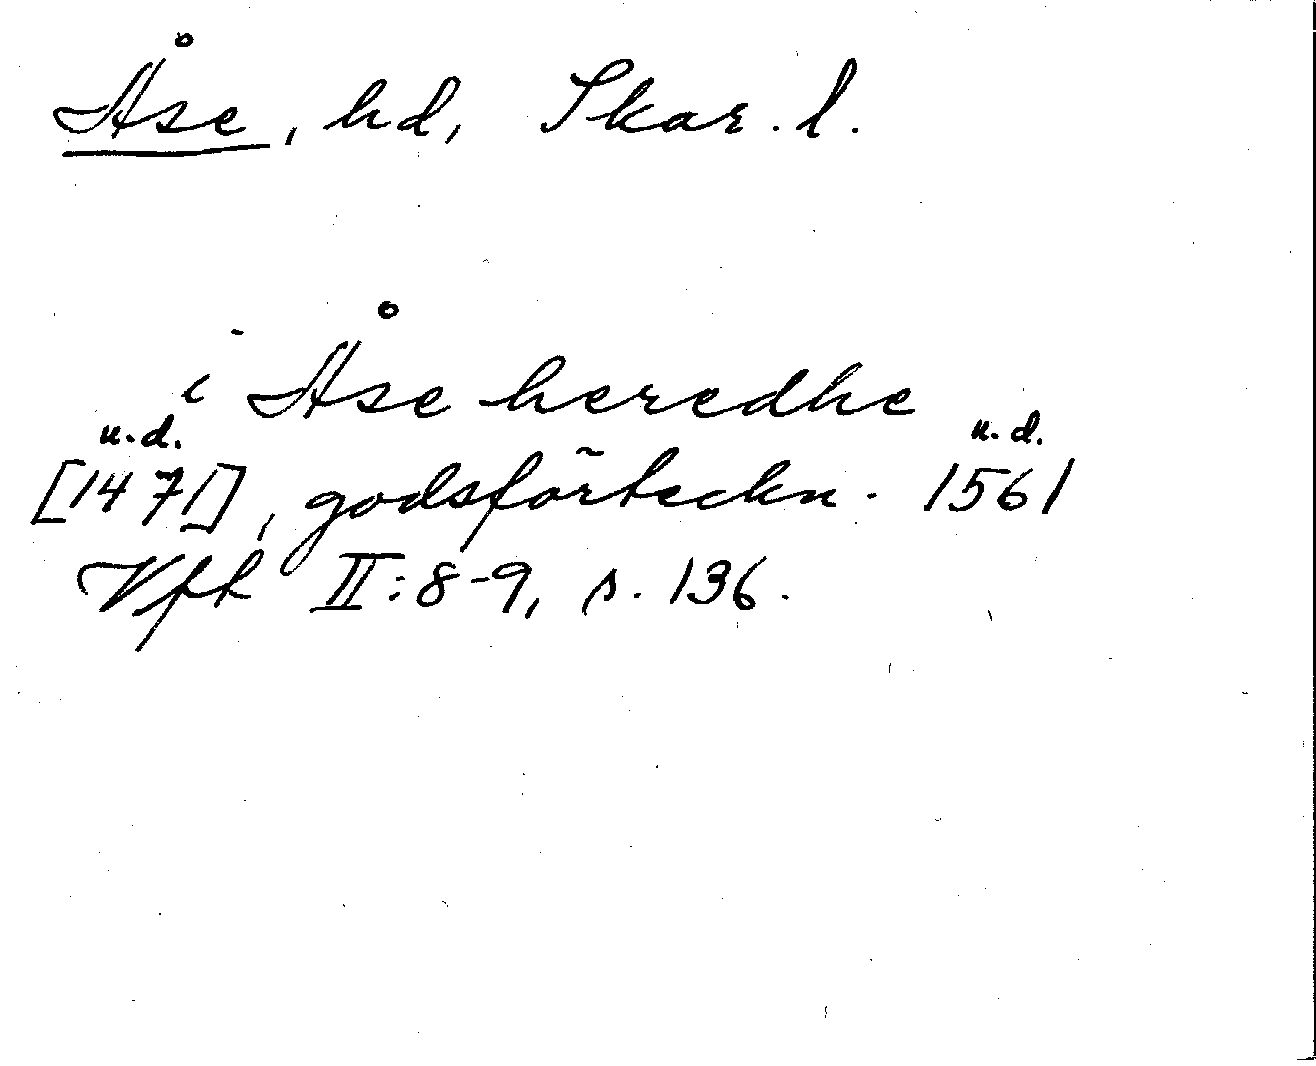 Åse, hd, Skar. l.
i Åse heredhe
u.d. u.d.
[1471], godsförteckn. 1561
Vfk II:8-9, s. 136.